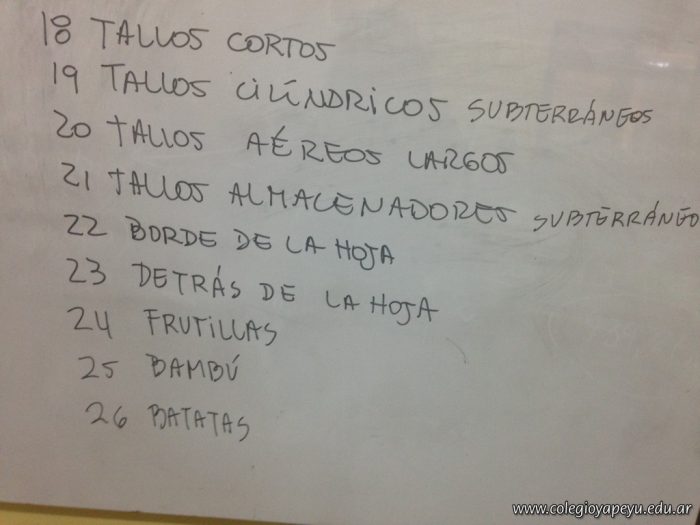 18 TALLOS CORTOS
19 TALLOS CILÍNDRICOS SUBTERRÁNEOS
20 TALLOS AÉREOS LARGOS
21 TALLOS ALMACENADORES SUBTERRÁNEO
22 BORDE DE LA HOJA
23 DETRÁS DE LA HOJA
24 FRUTILLAS
25 BAMBÚ
26 BATATAS
www.colegioyapeyu.edu.ar